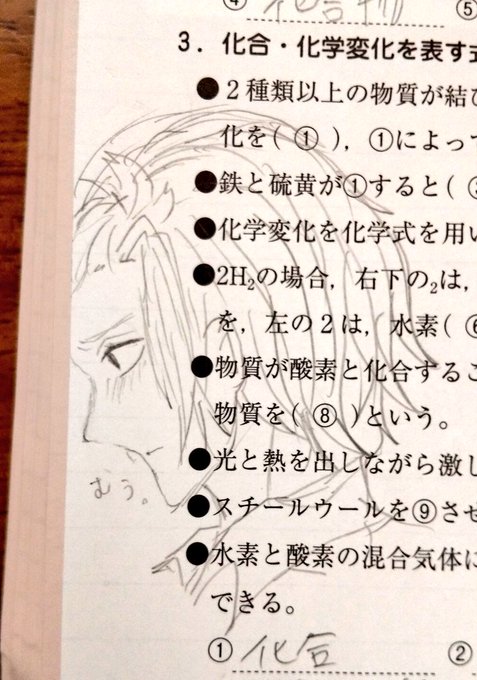 ④ 化合物 ⑤
3. 化合・化学変化を表す式
●2種類以上の物質が結び
化を( ① ), ①によって
●鉄と硫黄が①すると( ③
●化学変化を化学式を用い
●2H₂の場合, 右下の₂は,
を, 左の2は, 水素( ⑥
●物質が酸素と化合するこ
物質を( ⑧ )という。
●光と熱を出しながら激し
●スチールウールを⑨させ
●水素と酸素の混合気体に
できる。
むぅ。
① 化合 ②